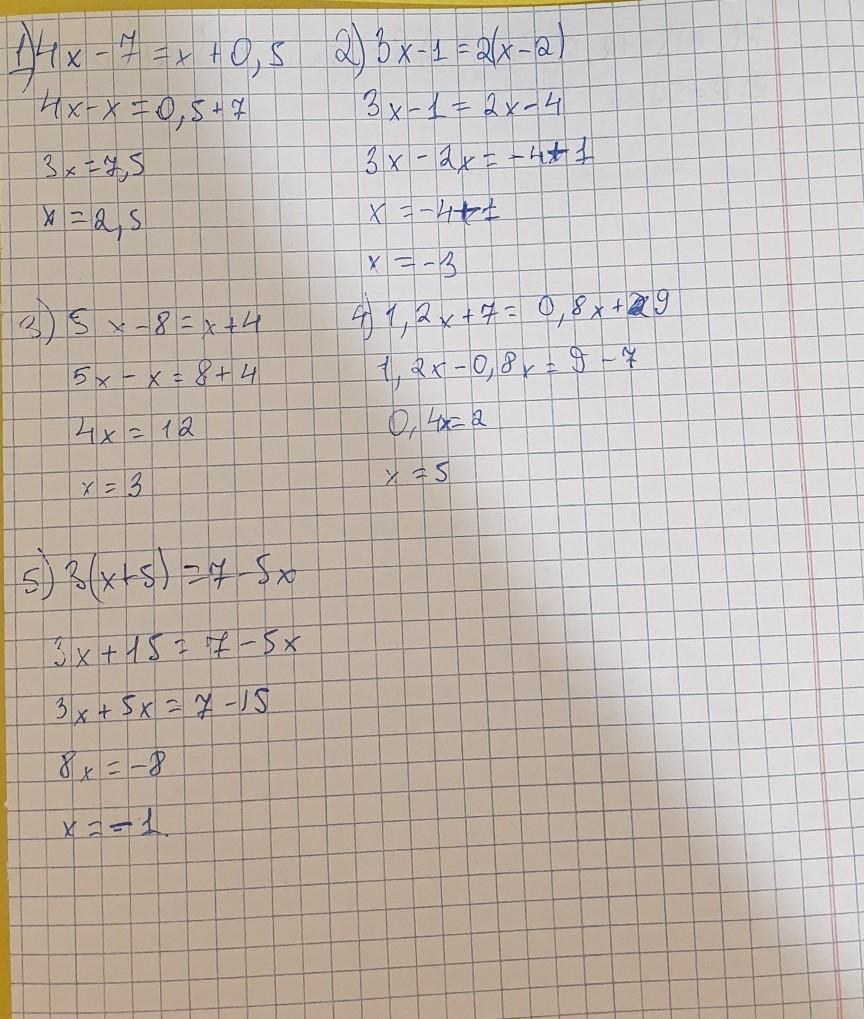 1) 4x - 7 = x + 0,5
4x - x = 0,5 + 7
3x = 7,5
x = 2,5
2) 3x - 1 = 2(x - 2)
3x - 1 = 2x - 4
3x - 2x = -4 + 1
x = -4 + 1
x = -3
3) 5x - 8 = x + 4
5x - x = 8 + 4
4x = 12
x = 3
4) 1,2x + 7 = 0,8x + 9
1,2x - 0,8x = 9 - 7
0,4x = 2
x = 5
5) 3(x + 5) = 7 - 5x
3x + 15 = 7 - 5x
3x + 5x = 7 - 15
8x = -8
x = -1